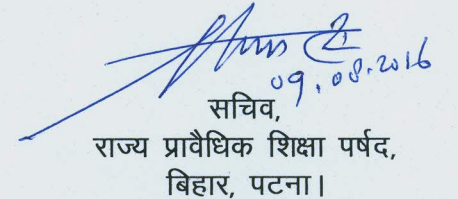 09.08.2016
सचिव,
राज्य प्रावैधिक शिक्षा पर्षद,
बिहार, पटना।